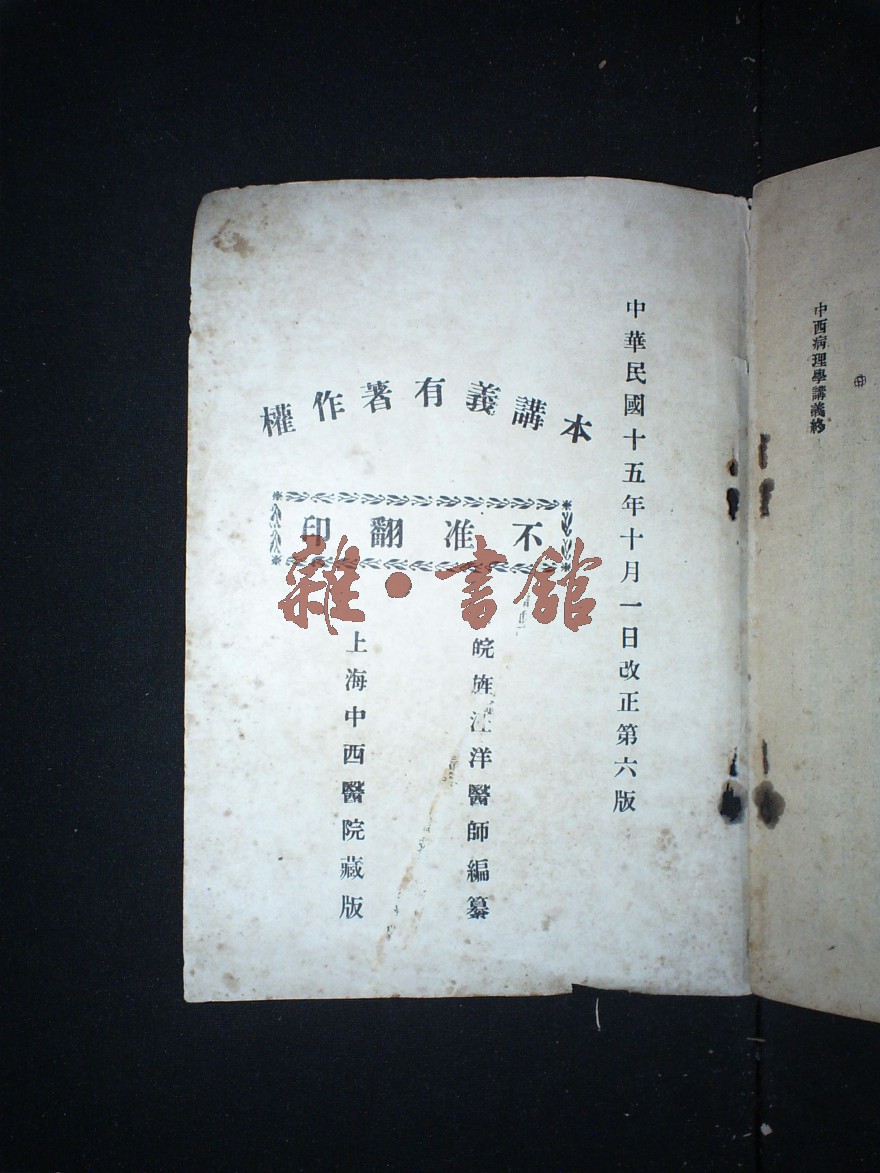 中西病理學講義終
中華民國十五年十月一日改正第六版
本講義有著作權
不准翻印
皖旌汪洋醫師編纂
上海中西醫院藏版
雜·書館